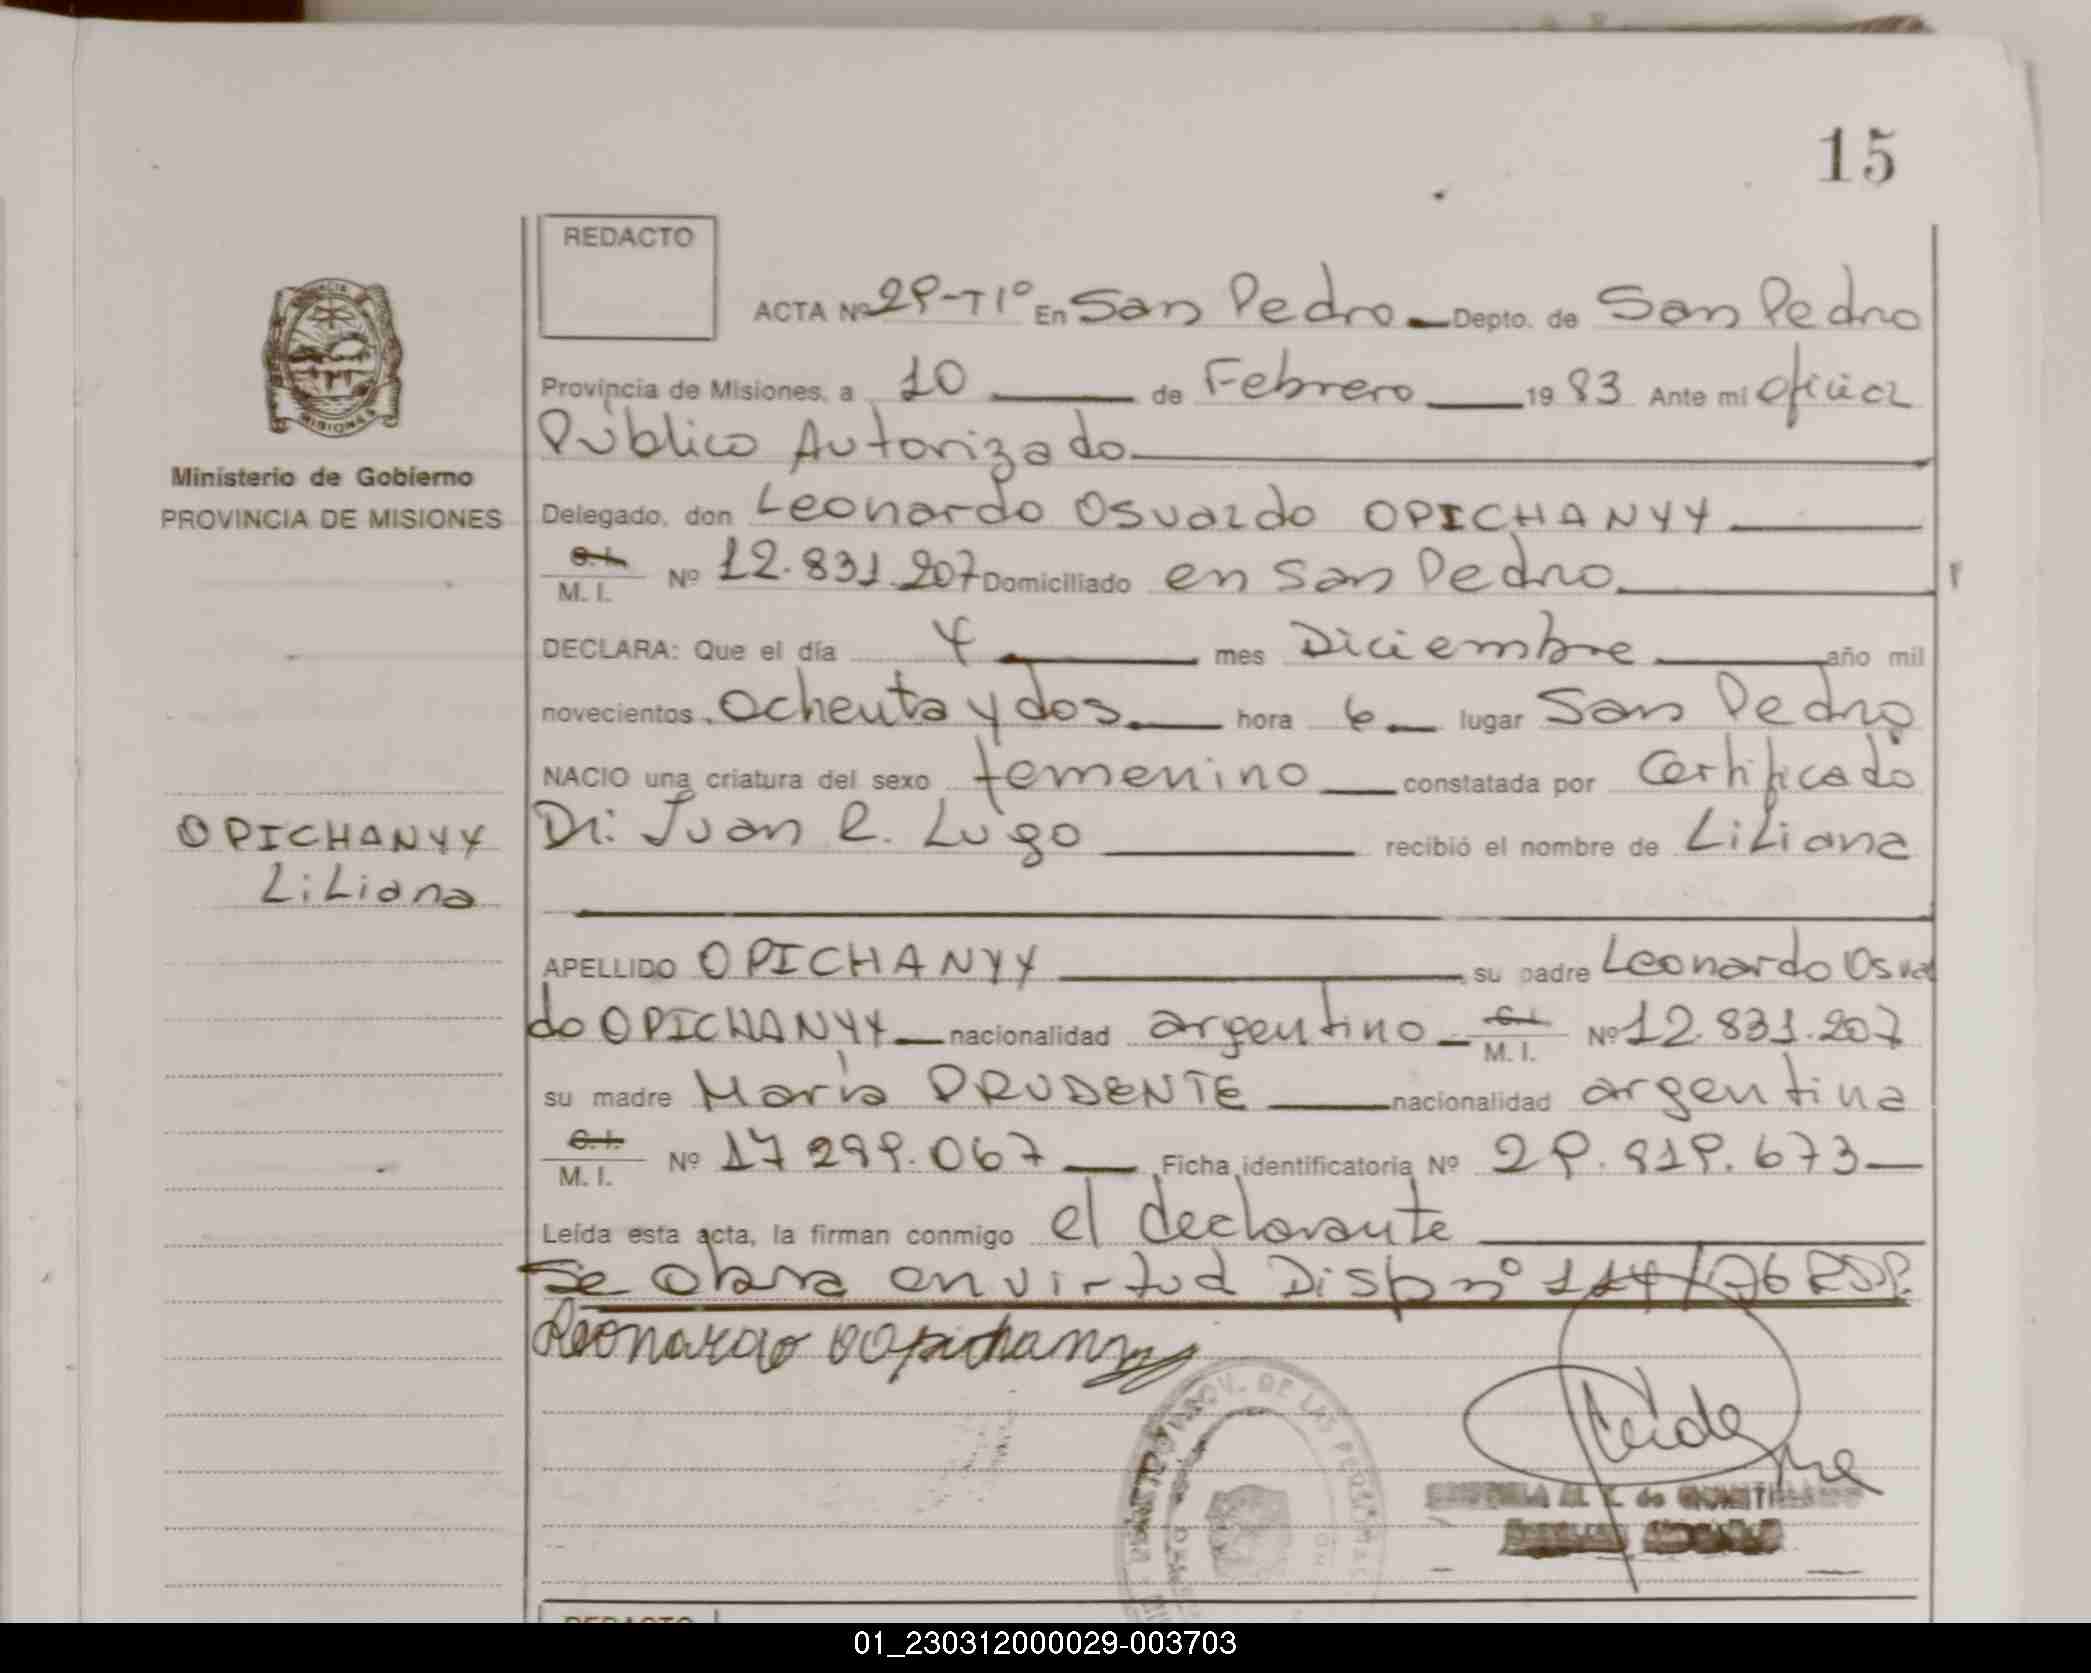 15
REDACTO
ACTA Nº 29-TIº En San Pedro Depto. de San Pedro
Provincia de Misiones, a 10 de Febrero 1983 Ante mi oficial
Público Autorizado
Ministerio de Gobierno
PROVINCIA DE MISIONES
Delegado, don Leonardo Osvaldo OPICHANYY
C. I. M. I. Nº 12.831.207 Domiciliado en San Pedro
DECLARA: Que el día 4 mes Diciembre año mil
novecientos ochenta y dos hora 6 lugar San Pedro
NACIO una criatura del sexo femenino constatada por Certificado
OPICHANYY
Liliana
Dr. Juan R. Lugo recibió el nombre de Liliana
APELLIDO OPICHANYY su padre Leonardo Osval
do OPICHANYY nacionalidad argentino C. I. M. I. Nº 12.831.207
su madre María PRUDENTE nacionalidad argentina
C. I. M. I. Nº 17 299.067 Ficha identificatoria Nº 29.819.673
Leída esta acta, la firman conmigo el declarante
Se obra en virtud Disp nº 114/76 RDP.
Leonardo O Opichanyy
PROV. DE LAS PERSONAS
REDACTO
01_230312000029-003703